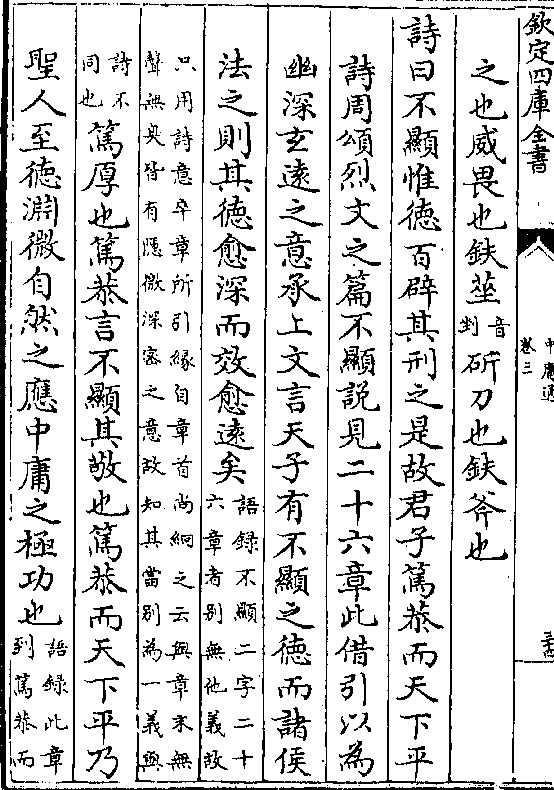 欽定四庫全書
中庸通
卷三
之也威畏也鈇莝音剉斫刀也鈇斧也
詩曰不顯惟德百辟其刑之是故君子篤恭而天下平
詩周頌烈文之篇不顯説見二十六章此借引以為
幽深玄遠之意承上文言天子有不顯之德而諸侯
法之則其德愈深而效愈遠矣語録不顯二字二十六章者别無他義故
只用詩意卒章所引緣自章首尚絅之云與章末無聲無臭皆有隠微深密之意故知其當别為一義與
詩不同也篤厚也篤恭言不顯其敬也篤恭而天下平乃
聖人至德淵微自然之應中庸之極功也語録此章到篤恭而